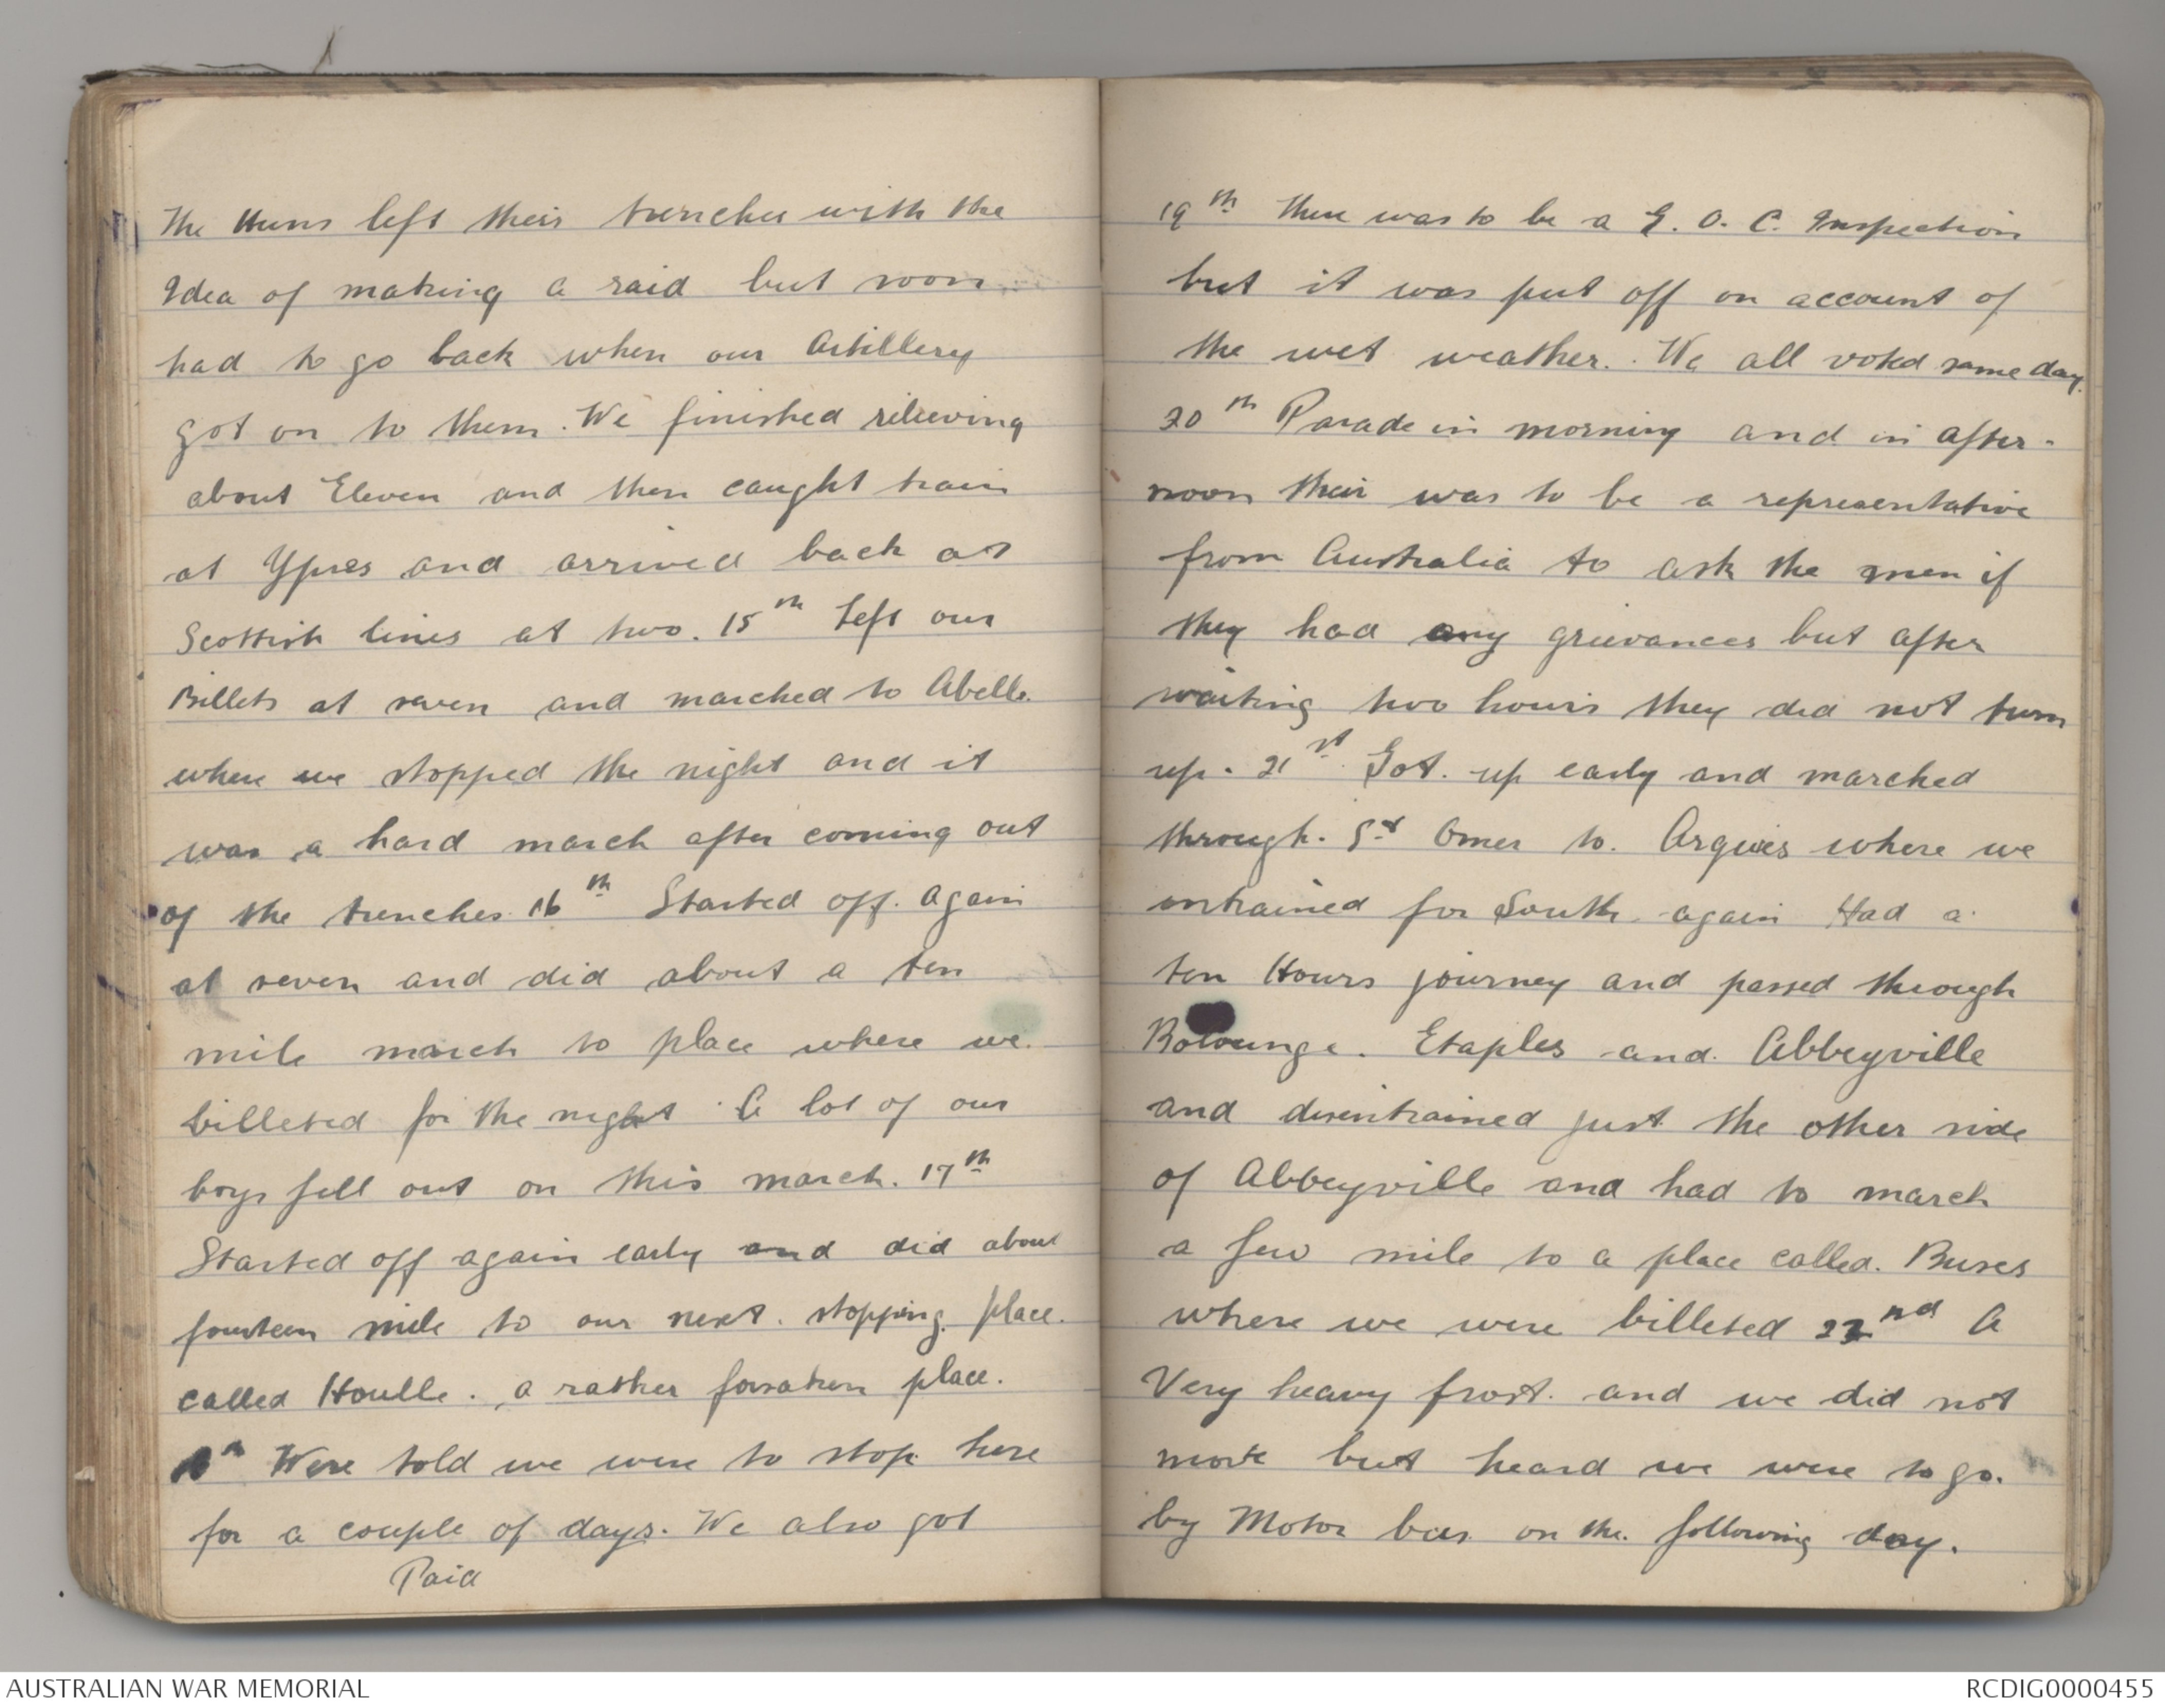 The Huns left their trenches with the
Idea of making a raid but soon
had to go back when our Artillery
got on to them. We finished relieving
about Eleven and then caught train
at Ypres and arrived back at
Scottish lines at two. 15th Left our
Billets at seven and marched to Abelle.
where we stopped the night and it
was a hard march after coming out
of the trenches. 16th Started off. again
at seven and did about a ten
mile march to place where we.
billeted for the night A lot of our
boys fell out on this march. 17th
Started off again early and did about
fourteen mile to our next. stopping place.
called Houlle. a rather forsaken place.
18th Were told we were to stop here
for a couple of days. We also got
Paid
19th There was to be a G. O. C. Inspection
but it was put off on account of
the wet weather. We all voted same day.
20th Parade in morning and in after-
noon their was to be a representative
from Australia to ask the men if
they had any grievances but after
waiting two hours they did not turn
up. 21st Got. up early and marched
through. St Omer to. Arques where we
entrained for South. again Had a
ten Hours journey and passed through
Bolounge. Etaples and. Abbeyville
and disentrained just the other side
of Abbeyville and had to march
a few mile to a place called. Buses
where we were billeted 22nd A
Very heavy frost. and we did not
move but heard we were to go.
by Motor bus. on the. following day.
AUSTRALIAN WAR MEMORIAL
RCDIG0000455